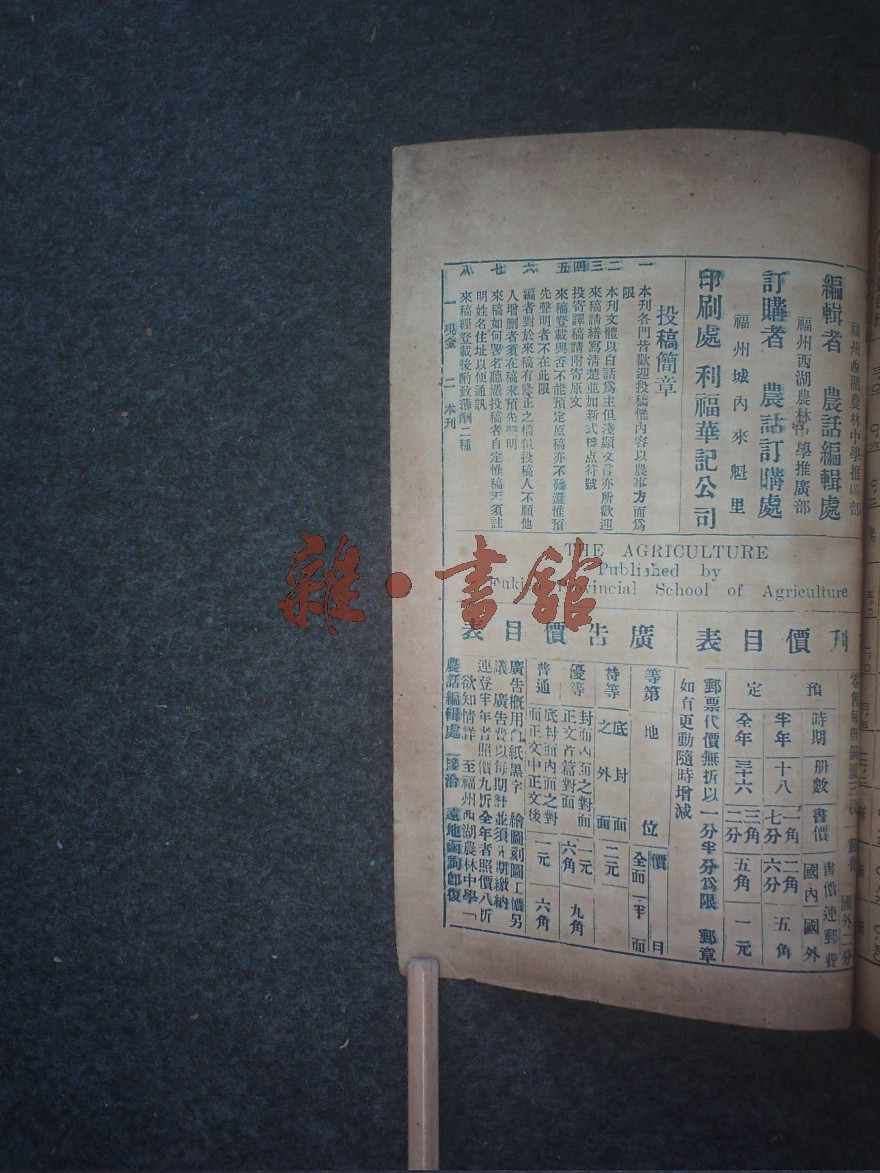 福州西湖農林中學推廣部
編輯者 農話編輯處
福州西湖農林中學推廣部
訂購者 農話訂購處
福州城內來魁里
印刷處 利福華記公司
投稿簡章
一 本刊各門皆歡迎投稿惟內容以農事方面爲
限
二 本刊文體以白話爲主但淺顯文言亦所歡迎
三 來稿請繕寫清楚並加新式標点符號
四 投寄譯稿請附寄原文
五 來稿登載與否不能預定原稿亦不殮還惟預
先聲明者不在此限
六 編者對於來稿有修正之權但投稿人不願他
人增删者須在稿末預先聲明
七 來稿如何署名聽憑投稿者自定惟稿末須註
明姓名住址以便通訊
八 來稿經登載後酌致薄酬二種
一 現金 二 本刊
THE AGRICULTURE
Published by
Provincial School of Agriculture
刊價目表
預定
時期 册數 書價 書價連郵費
國內 國外
半年 十八 一角七分 二角六分 五角
全年 三十六 三角二分 五角 一元
郵票代價無折以一分半分爲限 郵章
如有更動隨時增減
廣告價目表
等第 地位 價目
全面 半面
特等 底封面之外面 二元
優等 封面內面之對面 正文首篇對面 一元六角 九角
普通 底封面內面之對面正文中正文後 一元 六角
廣告概用白紙黑字 繪圖刻圖工價另
議 廣告費以每期計並須先期繳納
連登半年者照價九折全年者照價八折
欲知情詳 至福州西湖農林中學「
農話編輯處」接洽 遠地函詢卽復
雜·書館